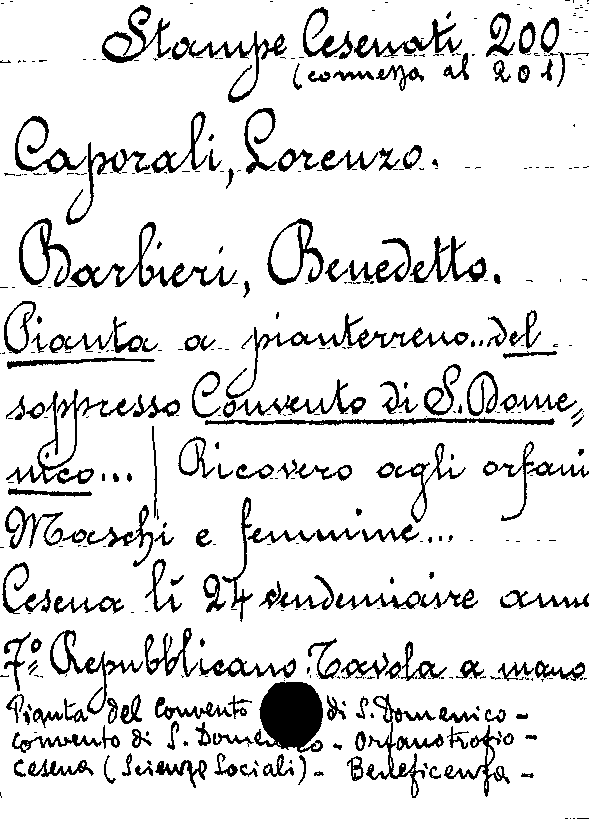 Stampe Cesenati 200
(connessa al 201)
Caporali, Lorenzo.
Barbieri, Benedetto.
Pianta a pianterreno..del
soppresso Convento di S. Dome=
nico...| Ricovero agli orfani
Maschi e femmine...
Cesena lì 24 vendemiaire anno
7º Repubblicano. Tavola a mano
Pianta del Convento di S. Domenico -
convento di S. Domenico - Orfanotrofio -
Cesena (Scienze Sociali) - Beneficenza -